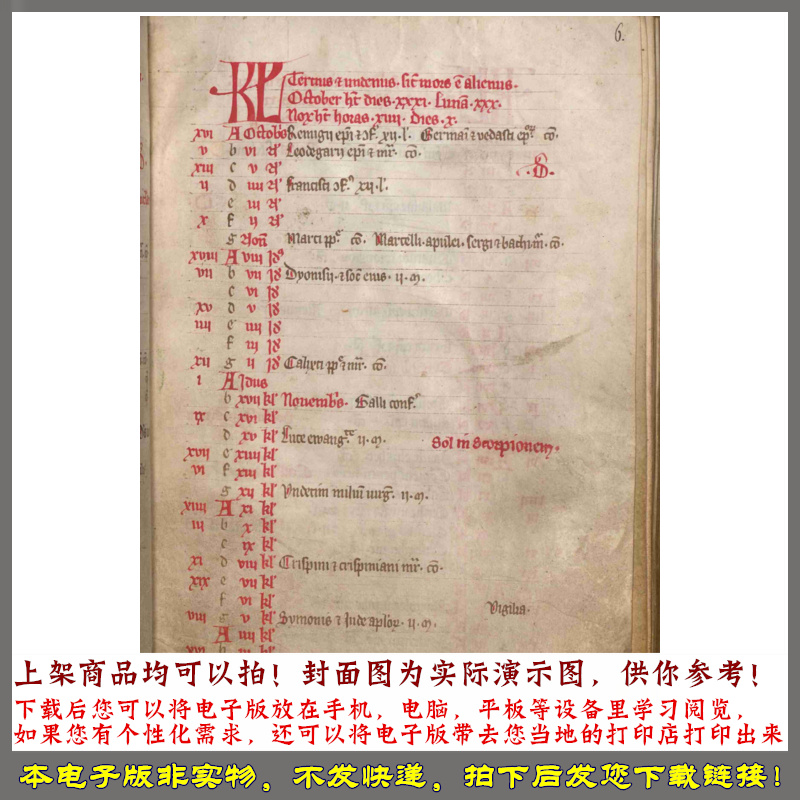 6.
KL Tercius & undenus. sic̄ mors ē alienus.
October ht̄ dies. xxxi. Luna. xxx.
Nox ht̄ horas. xiiii. Dies. x.
xvi A Octob's Remigii ep̄i & ɔf. xii. l'. Germai & vedasti ep̄. co͂.
v b vi N' Leodegarii ep̄i & mr̄. co͂.
xiii c v N'
ii d iiii N' Francisci ɔf. xii. l'.
e iii N'
x f ii N'
g Non' Marci pp̄. co͂. Marcelli. apulei. sergi & bachi mr̄. co͂.
xviii A viii Id'
vii b vii Id' Dyonisii. & soc̄ eius. ii. m.
c vi Id'
xv d v Id'
iiii e iiii Id'
f iii Id'
xii g ii Id' Calixti pp̄ & mr̄. co͂.
i A Idus
b xvii kl' Novemb's. Galli conf.
ix c xvi kl'
d xv kl' Luce ewang. ii. m. Sol in Scorpionem.
xvii e xiiii kl'
vi f xiii kl'
g xii kl' Undecim miliū virg. ii. m.
xiiii A xi kl'
iii b x kl'
c ix kl'
xi d viii kl' Crispini & crispiniani mr̄. co͂.
xix e vii kl'
f vi kl' Vigilia.
viii g v kl' Symonis & Iude aplor. ii. m.
A iiii kl'
上架商品均可以拍！封面图为实际演示图，供你参考！
下载后您可以将电子版放在手机，电脑，平板等设备里学习阅览，
如果您有个性化需求，还可以将电子版带去您当地的打印店打印出来
本电子版非实物，不发快递，拍下后发您下载链接！